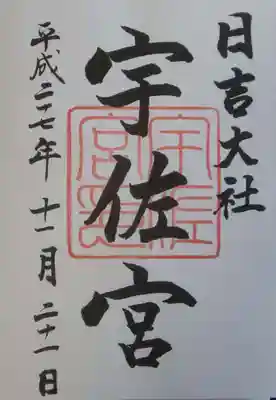 日吉大社
宇佐宮
平成二十七年 十一月 二十一日